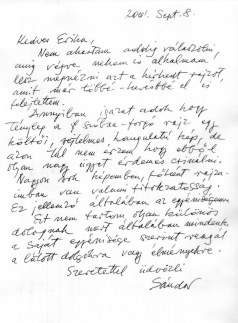 2001. Sept. 8.
Kedves Erika,
Nem akartam addig válaszolni,
amíg végre nehem is alkalmam
lesz megnézni azt a hírhedt rajzot,
amit már többé-kevésbé el is
felejtettem.
Annyiban igazat adok, hogy
tényleg a rajz egy
költői, rejtelmes, hangulatú kép, de
azon túl nem érzem hogy ebből
olyan nagy ügyet érdemes csinálni.
Nagyon sok képemben, főként rajza-
imban van valami titokzatosság.
Ez jellemző általában az egyéniségemre
Ezt nem tartom olyan különös
dolognak mert általában mindenki
a saját egyénisége szerint reagál
a látott dolgokra vagy élményekre.
Szeretettel üdvözli
Sándor